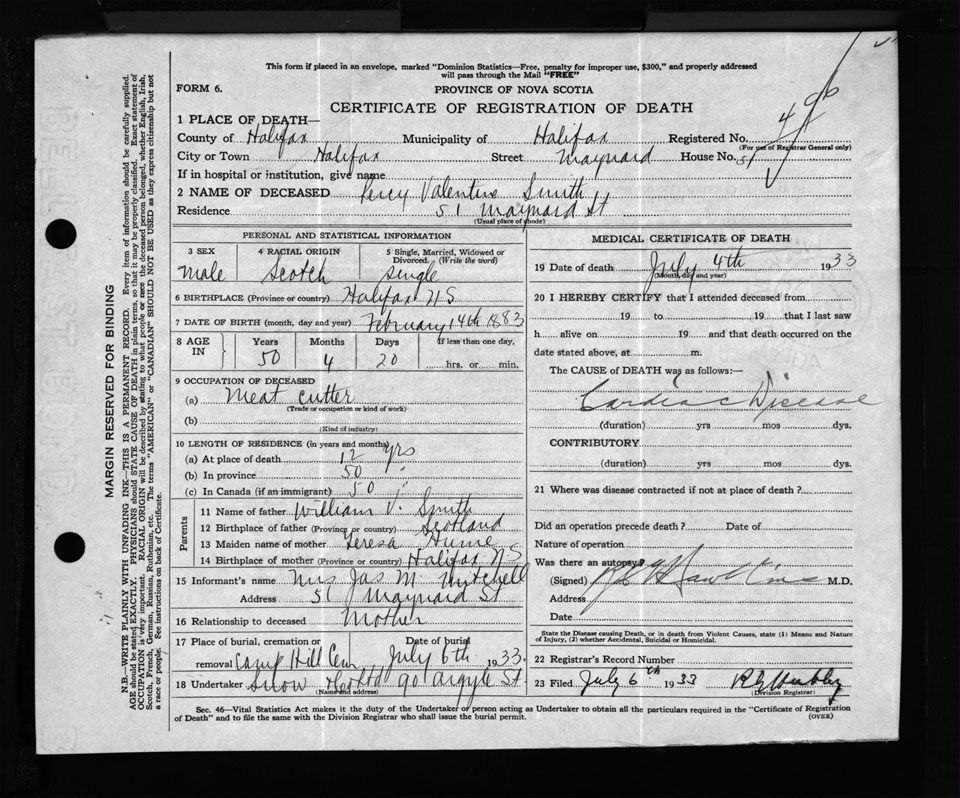 This form if placed in an envelope, marked "Dominion Statistics—Free, penalty for improper use, $300," and properly addressed
will pass through the Mail "FREE"
FORM 6.
PROVINCE OF NOVA SCOTIA
CERTIFICATE OF REGISTRATION OF DEATH
1 PLACE OF DEATH—
County of Halifax Municipality of Halifax Registered No.
(For use of Registrar General only)
City or Town Halifax Street Maynard House No. 51
If in hospital or institution, give name
2 NAME OF DECEASED Percy Valentine Smith
Residence 51 Maynard St
(Usual place of abode)
PERSONAL AND STATISTICAL INFORMATION
3 SEX 4 RACIAL ORIGIN 5 Single, Married, Widowed or Divorced. (Write the word)
Male Scotch Single
6 BIRTHPLACE (Province or country) Halifax N S
7 DATE OF BIRTH (month, day and year) February 14th 1883
8 AGE IN Years Months Days If less than one day,
50 4 20 hrs. or min.
9 OCCUPATION OF DECEASED
(a) Meat cutter
(Trade or occupation or kind of work)
(b)
(Kind of industry)
10 LENGTH OF RESIDENCE (in years and months)
(a) At place of death 12 yrs
(b) In province 50 "
(c) In Canada (if an immigrant) 50 "
Parents
11 Name of father William V. Smith
12 Birthplace of father (Province or country) Scotland
13 Maiden name of mother Teresa Hume
14 Birthplace of mother (Province or country) Halifax N S
15 Informant's name Mrs Jas M. Mitchell
Address 51 Maynard St
16 Relationship to deceased Mother
17 Place of burial, cremation or removal Date of burial
Camp Hill Cem July 6th 1933
18 Undertaker Snow 90 Argyle St
(Name and address)
MEDICAL CERTIFICATE OF DEATH
19 Date of death July 4th 1933
(Month, day and year)
20 I HEREBY CERTIFY that I attended deceased from
19 to 19 that I last saw
h alive on 19 and that death occurred on the
date stated above, at m.
The CAUSE of DEATH was as follows:—
Cardiac Disease
(duration) yrs mos dys.
CONTRIBUTORY
(duration) yrs mos dys.
21 Where was disease contracted if not at place of death?
Did an operation precede death? Date of
Nature of operation
Was there an autopsy?
(Signed) M.D.
Address
Date
State the Disease causing Death, or in death from Violent Causes, state (1) Means and Nature
of Injury, (2) whether Accidental, Suicidal or Homicidal.
22 Registrar's Record Number
23 Filed July 6th 1933
(Division Registrar)
Sec. 46—Vital Statistics Act makes it the duty of the Undertaker or person acting as Undertaker to obtain all the particulars required in the "Certificate of Registration
of Death" and to file the same with the Division Registrar who shall issue the burial permit.
(OVER)
MARGIN RESERVED FOR BINDING
N.B.—WRITE PLAINLY WITH UNFADING INK—THIS IS A PERMANENT RECORD. Every item of information should be carefully supplied.
AGE should be stated EXACTLY. PHYSICIANS should STATE CAUSE OF DEATH in plain terms, so that it may be properly classified. Exact statement of
OCCUPATION is very important. RACIAL ORIGIN will be described by stating to what people or race the deceased person belonged, whether English, Irish,
Scotch, French, German, Russian, Ruthenian, etc. The terms "AMERICAN" or "CANADIAN" SHOULD NOT BE USED as they express citizenship but not
a race or people. See instructions on back of Certificate.